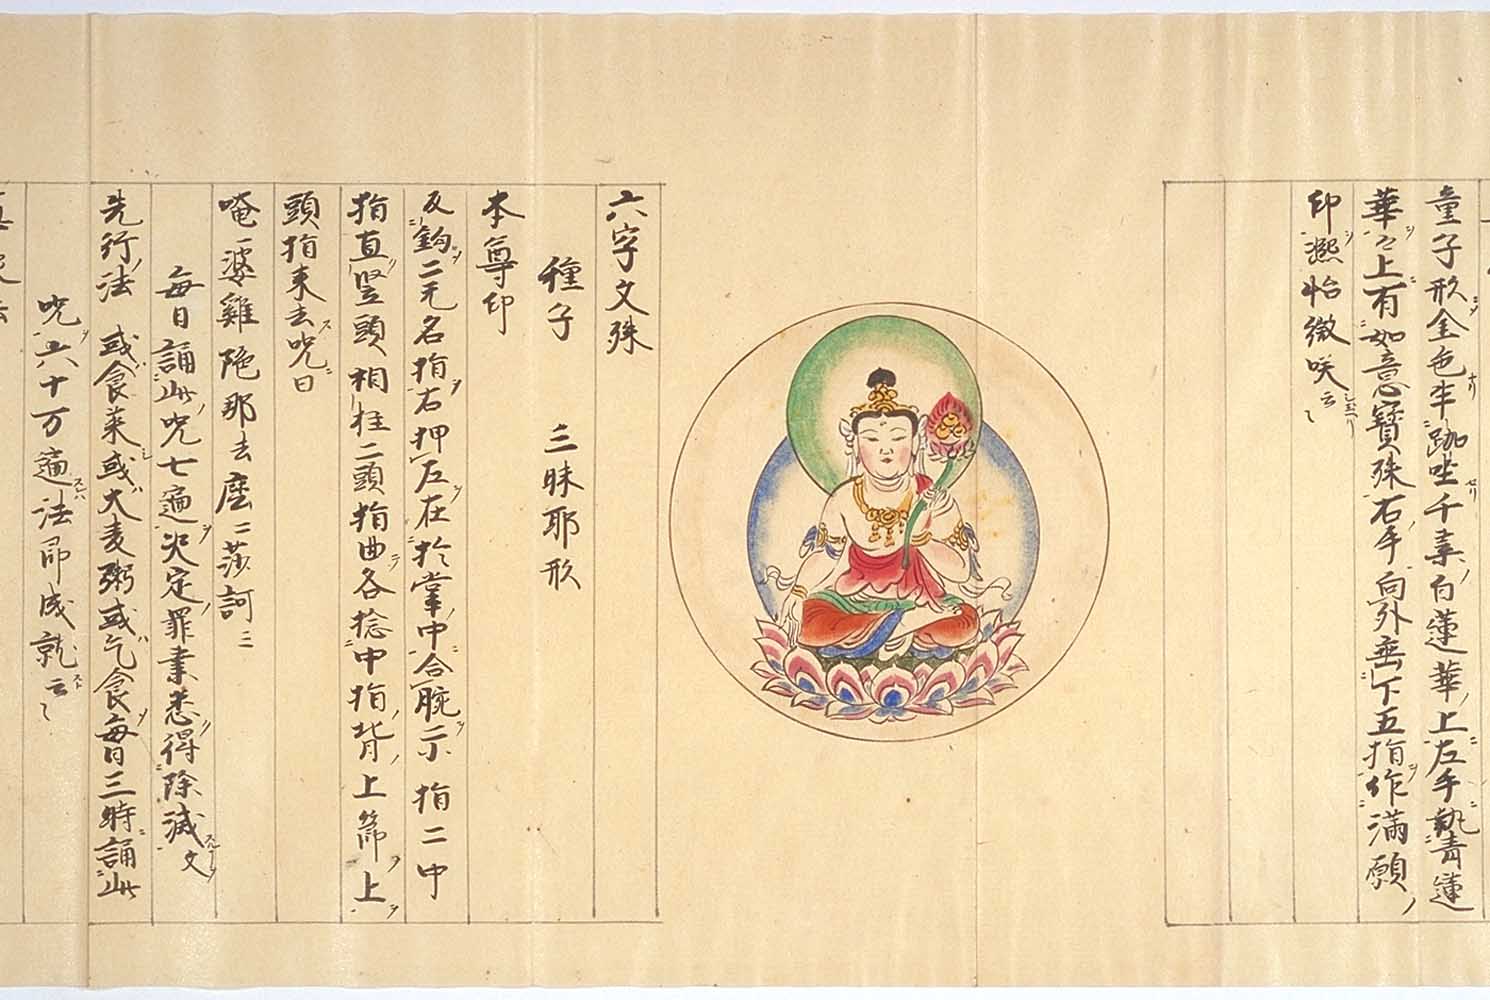 童子形金色半跏坐千葉白蓮華上左手執青蓮
華々上有如意寶珠右手向外垂下五指作滿願
印熙怡微咲云々
六字文殊
種子 三昧耶形
本尊印
反鈎二无名指右押左在於掌中合腕二小指二中
指直竪頭相拄二頭指曲各捻中指背上節上
頭指来去呪曰
唵一婆雞陁那去麼二莎訶二
毎日誦此呪七遍决定罪業悉得除滅文
先行法 或食菜或大麦粥或乞食毎日三時誦此
呪六十万遍法即成就云々